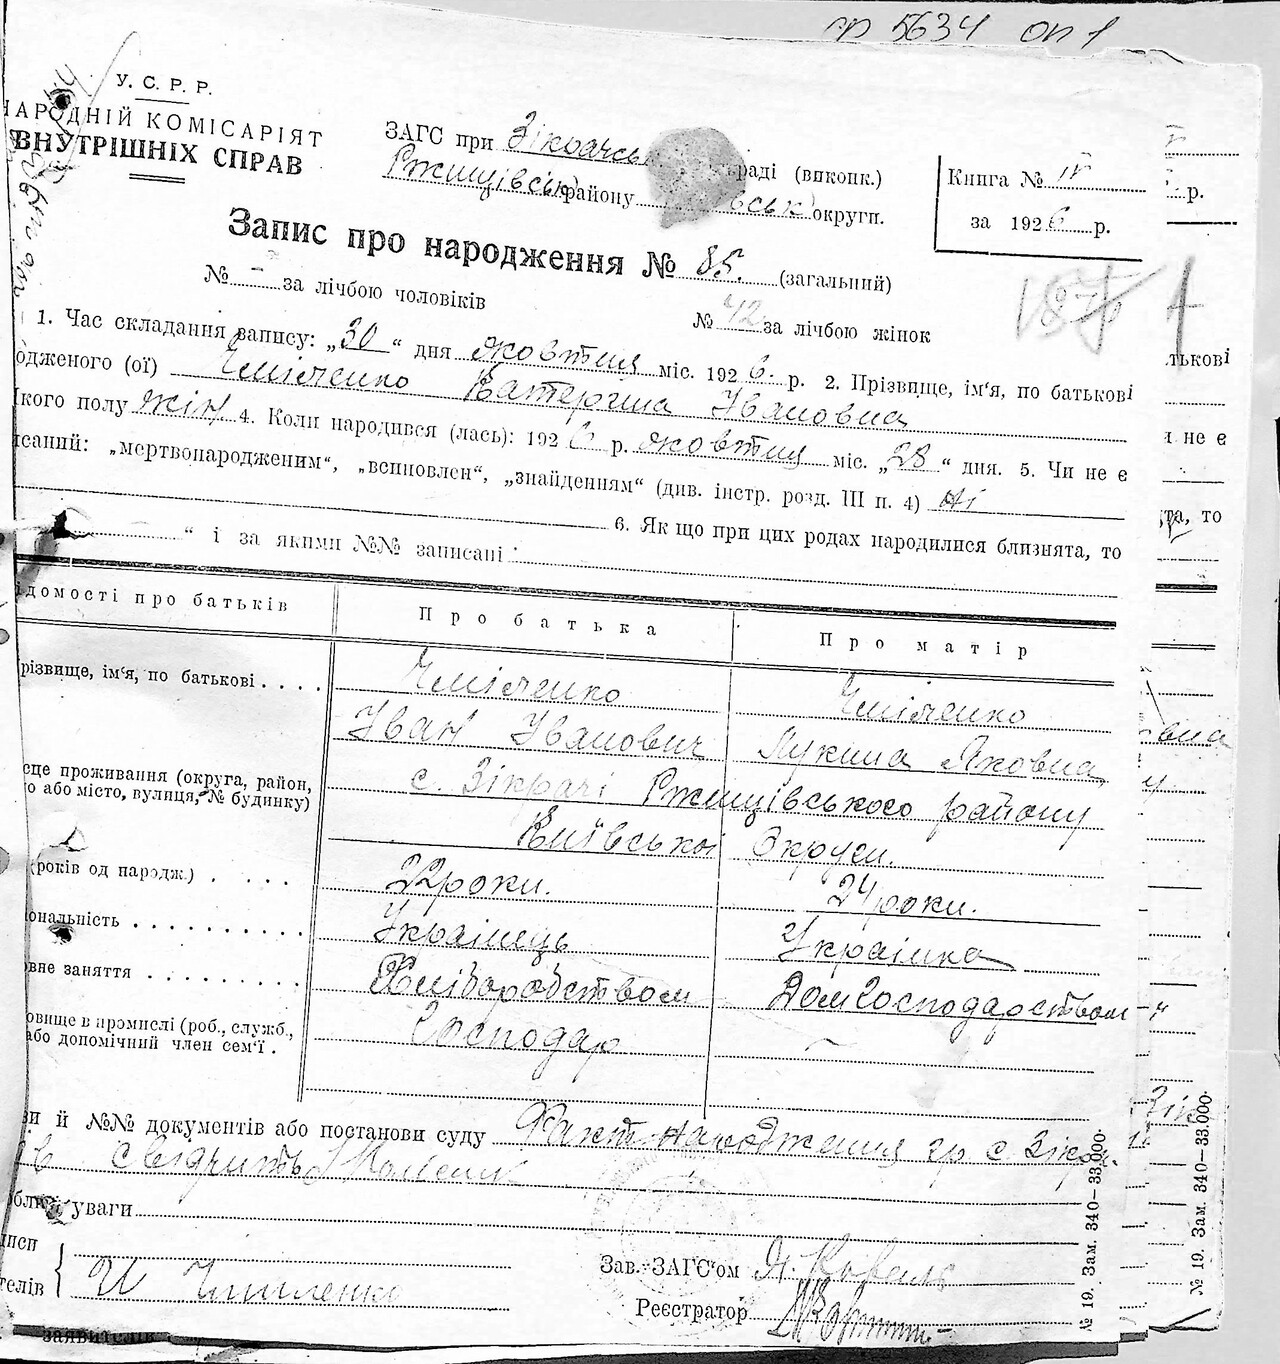 ф 5634 оп 1
У. С. Р. Р.
НАРОДНІЙ КОМІСАРІЯТ
ВНУТРІШНІХ СПРАВ
ЗАГС при Зікрачськ раді (викопк.)
Ржищівськ району вськ округи.
Книга № IV
за 1926 р.
Запис про народження № 85. (загальний)
№ – за лічбою чоловіків
№ 42 за лічбою жінок
1. Час складання запису: „30“ дня жовтня міс. 1926. р. 2. Прізвище, ім‘я, по батькові
одженого (ої) Чміленко Катерина Івановна
кого полу жін 4. Коли народився (лась): 1926 р. жовтня міс. „28“ дня. 5. Чи не є
исаний: „мертвонародженим“, „всиновлен“, „знайденням“ (див. інстр. розд. III п. 4) ні
6. Як що при цих родах народилися близнята, то
“ і за якими №№ записані
домості про батьків
Про батька
Про матір
різвище, ім‘я, по батькові
Чміленко
Чміленко
Іван Іванович
Лукина Яковна
сце проживання (округа, район,
о або місто, вулиця, № будинку)
с. Зікрачі Ржищівського району
Київської Округи.
(років од народж.)
22 роки.
24 роки.
ональність
Українець
Українка
вне заняття
Хліборобством
Дом господарством
овище в промислі (роб., служб.,
або допомічний член сем‘ї.
Господар
–
ви й №№ документів або постанови суду Факт народження гр. с. Зікрач
ів свідчить
обливі уваги
писи
телів
И Чміленко
Зав. ЗАГС‘ом Я. Коваль
Реєстратор
заявителів
№ 19. Зам. 340–33.000.
№ 19. Зам. 340–33.000.
р.
тькові
и не є
та, то
вна
Зік